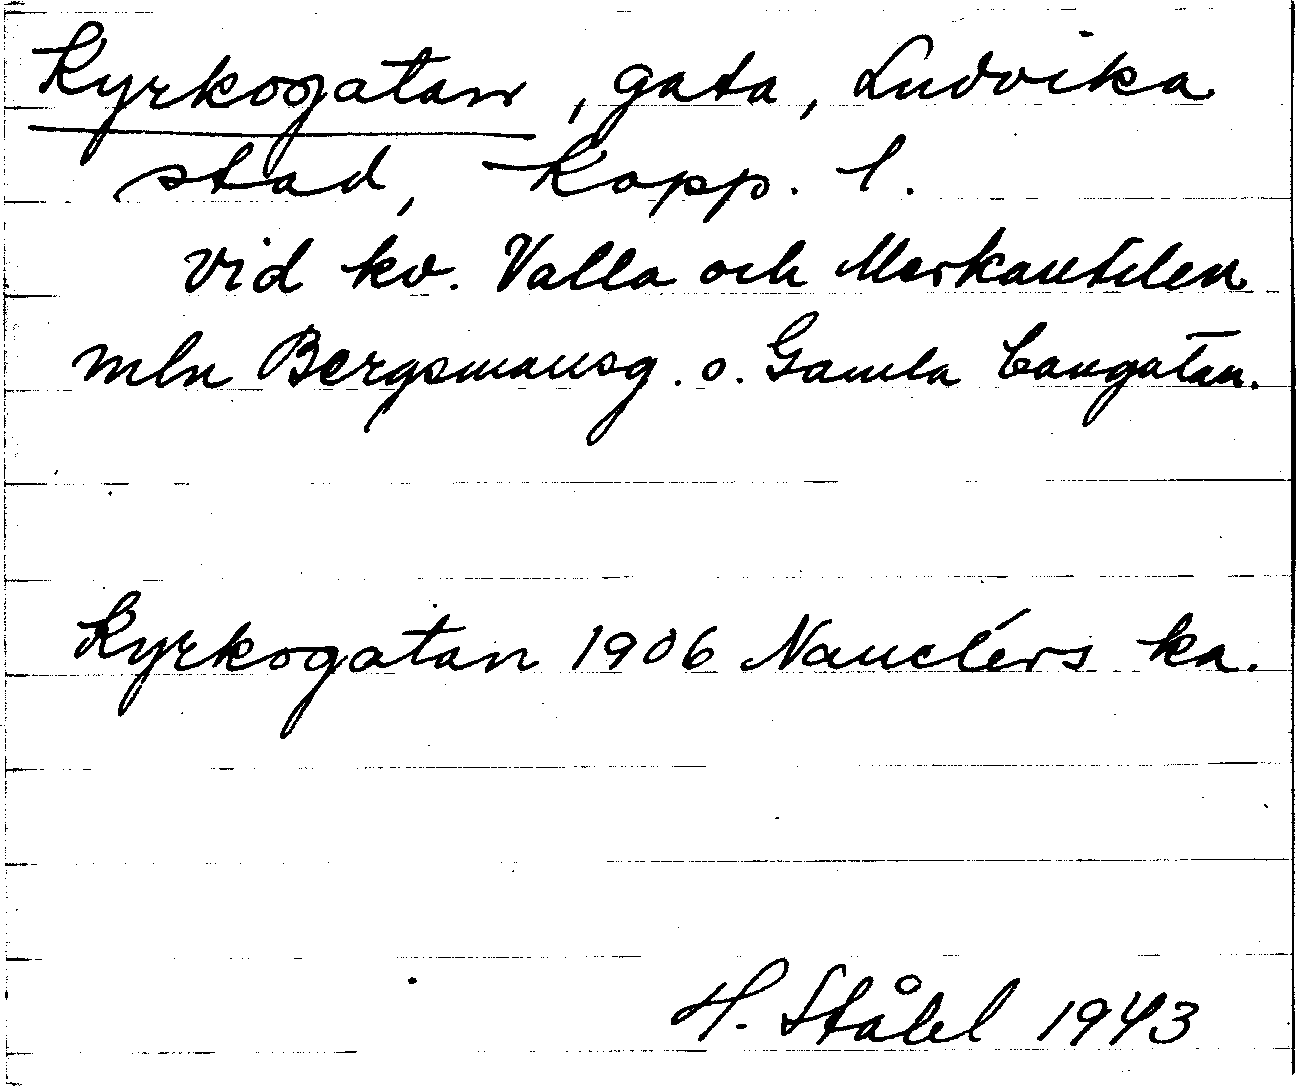 Kyrkogatan, gata, Ludvika
stad, Kopp. l.
vid kv. Valla och Merkantilen
mln Bergsmansg. o. Gamla Cangatan.
Kyrkogatan 1906 Nauclérs ka.
H. Ståhl 1943